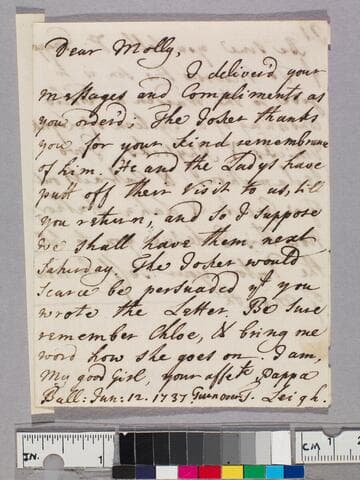 Dear Molly,
I deliver'd your
messages and Compliments as
you order'd; The Joker thanks
you for your kind remembrance
of him. He and the Ladys have
put off their Visit to us, till
you return; and so I suppose
we shall have them next
Saturday. The Joker would
scarce be persuaded yt you
wrote the Letter. Be sure
remember Chloe, & bring me
word how she goes on. I am,
My good Girl, your affte Pappa
Ball: Jun: 12. 1737 T. Leigh.
IN. 1
CM 1 2